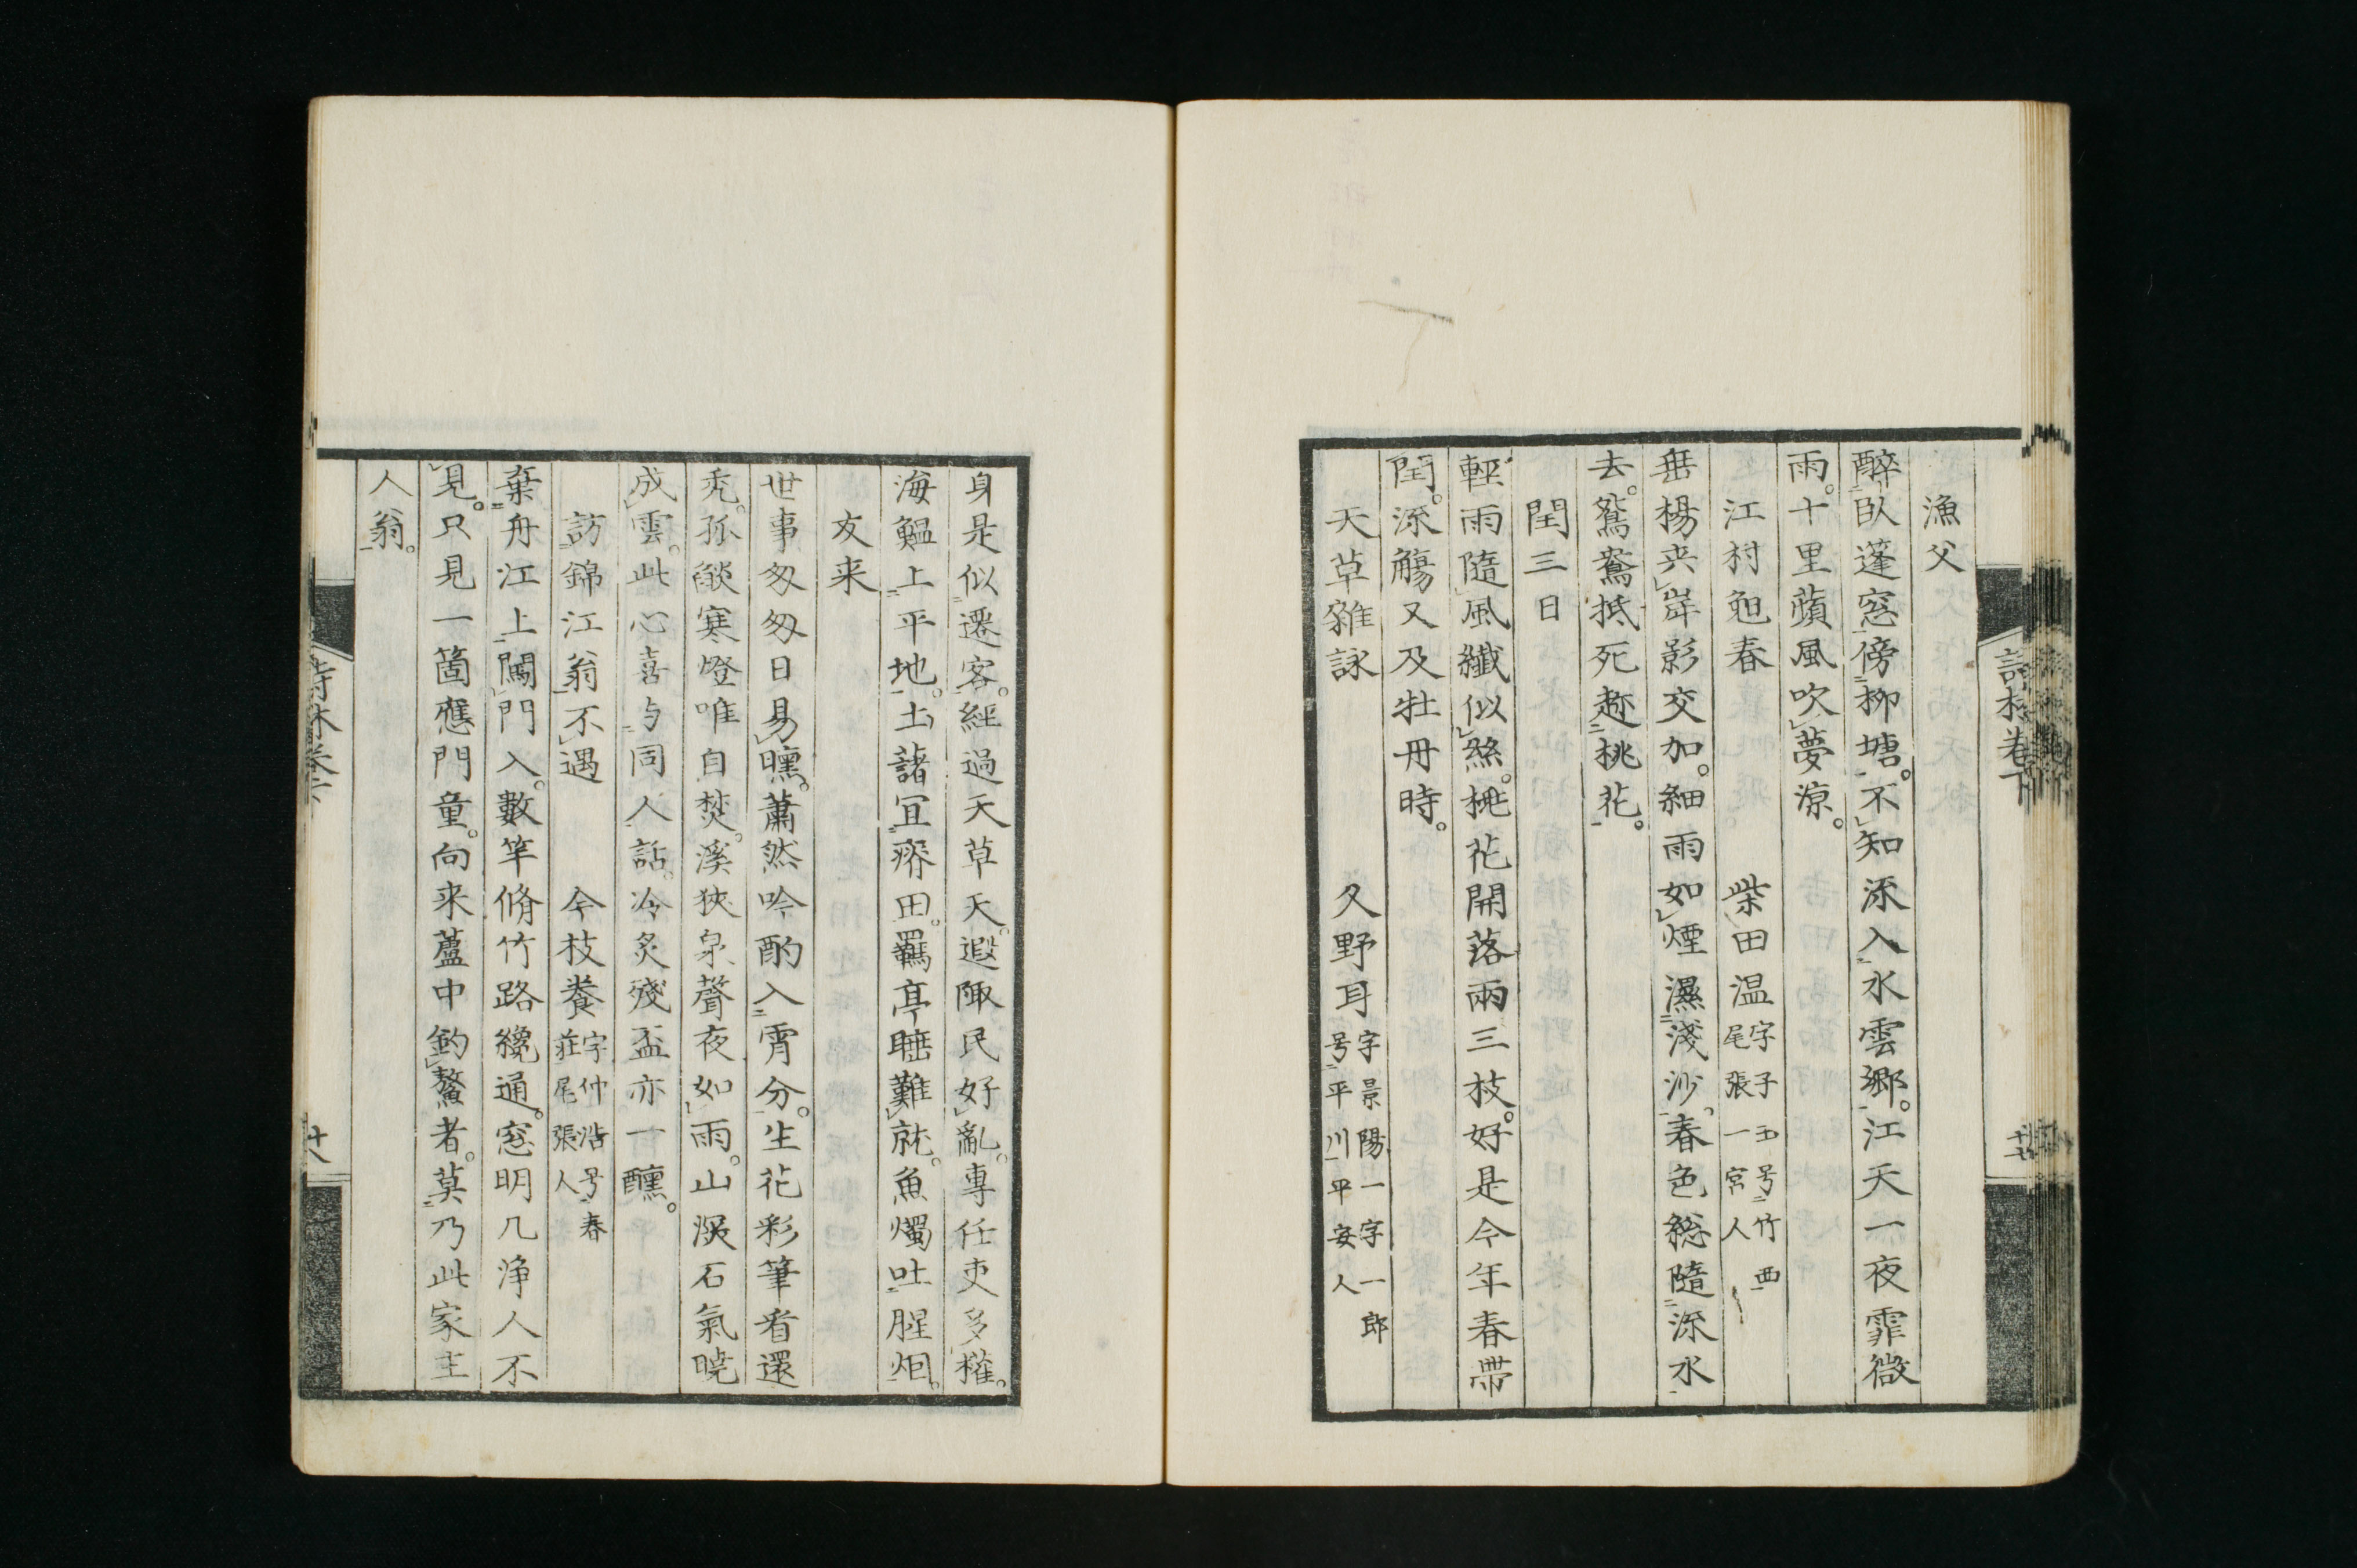 漁父
醉臥蓬窓傍柳塘。不知深入水雲郷。江天一夜霏微
雨。十里蘋風吹夢涼。
江村即春 柴田温 字子玉号竹西
尾張一宮人
垂楊夾岸影交加。細雨如煙濕淺沙。春色総隨深水
去。鴛鴦抵死趂桃花。
閏三日
輕雨隨風纖似絲。桃花開落兩三枝。好是今年春帶
閏。深觴又及牡丹時。
天草雜詠 久野耳 字景陽一字一郎
号平川平安人
詩林卷下
身是似遷客。經過天草天。遐陬民好亂。專任吏多權。
海鰛上平地。土藷宜瘠田。羈亭睡難就。魚燭吐腥烟。
友来
世事匆匆日易曛。蕭然吟酌入宵分。生花彩筆看還
禿。孤燄寒燈唯自焚。溪狹泉聲夜如雨。山深石氣曉
成雲。此心喜与同人話。冷炙殘盃亦一醺。
訪錦江翁不遇 今枝養 字仲浩号春
莊尾張人
棄舟江上闖門入。數竿脩竹路纔通。窓明几浄人不
見。只見一箇應門童。向来蘆中釣鰲者。莫乃此家主
人翁。
十八